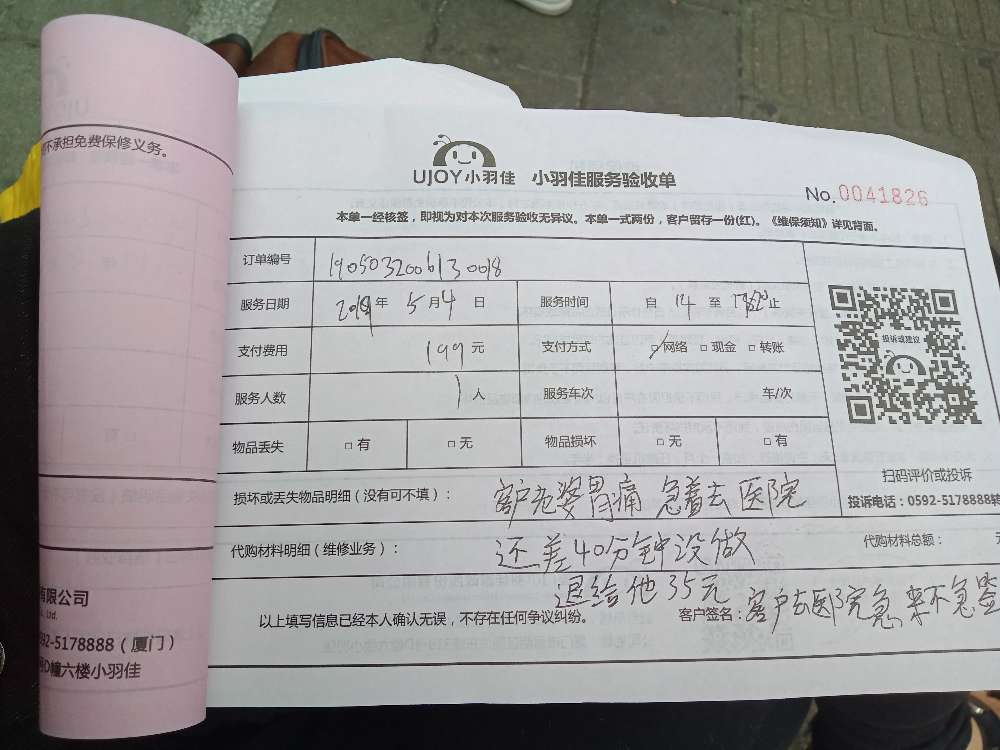 不承担免费保修义务。
UJOY小羽佳 小羽佳服务验收单
No.0041826
本单一经核签，即视为对本次服务验收无异议。本单一式两份，客户留存一份(红)。《维保须知》详见背面。
订单编号 1905032006130018
服务日期 2019年 5月4日 服务时间 自 14 至 止
支付费用 199元 支付方式 □网络 □现金 □转账
服务人数 1人 服务车次 车/次
物品丢失 □有 □无 物品损坏 □无 □有
投诉或建议
扫码评价或投诉
投诉电话：0592-5178888转
损坏或丢失物品明细（没有可不填）： 客户老婆胃痛 急着去医院
代购材料明细（维修业务）： 还差40分钟没做 代购材料总额：
退给他35元
以上填写信息已经本人确认无误，不存在任何争议纠纷。 客户签名：客户去医院急来不急签
有限公司
Ltd.
92-5178888（厦门）
D幢六楼小羽佳